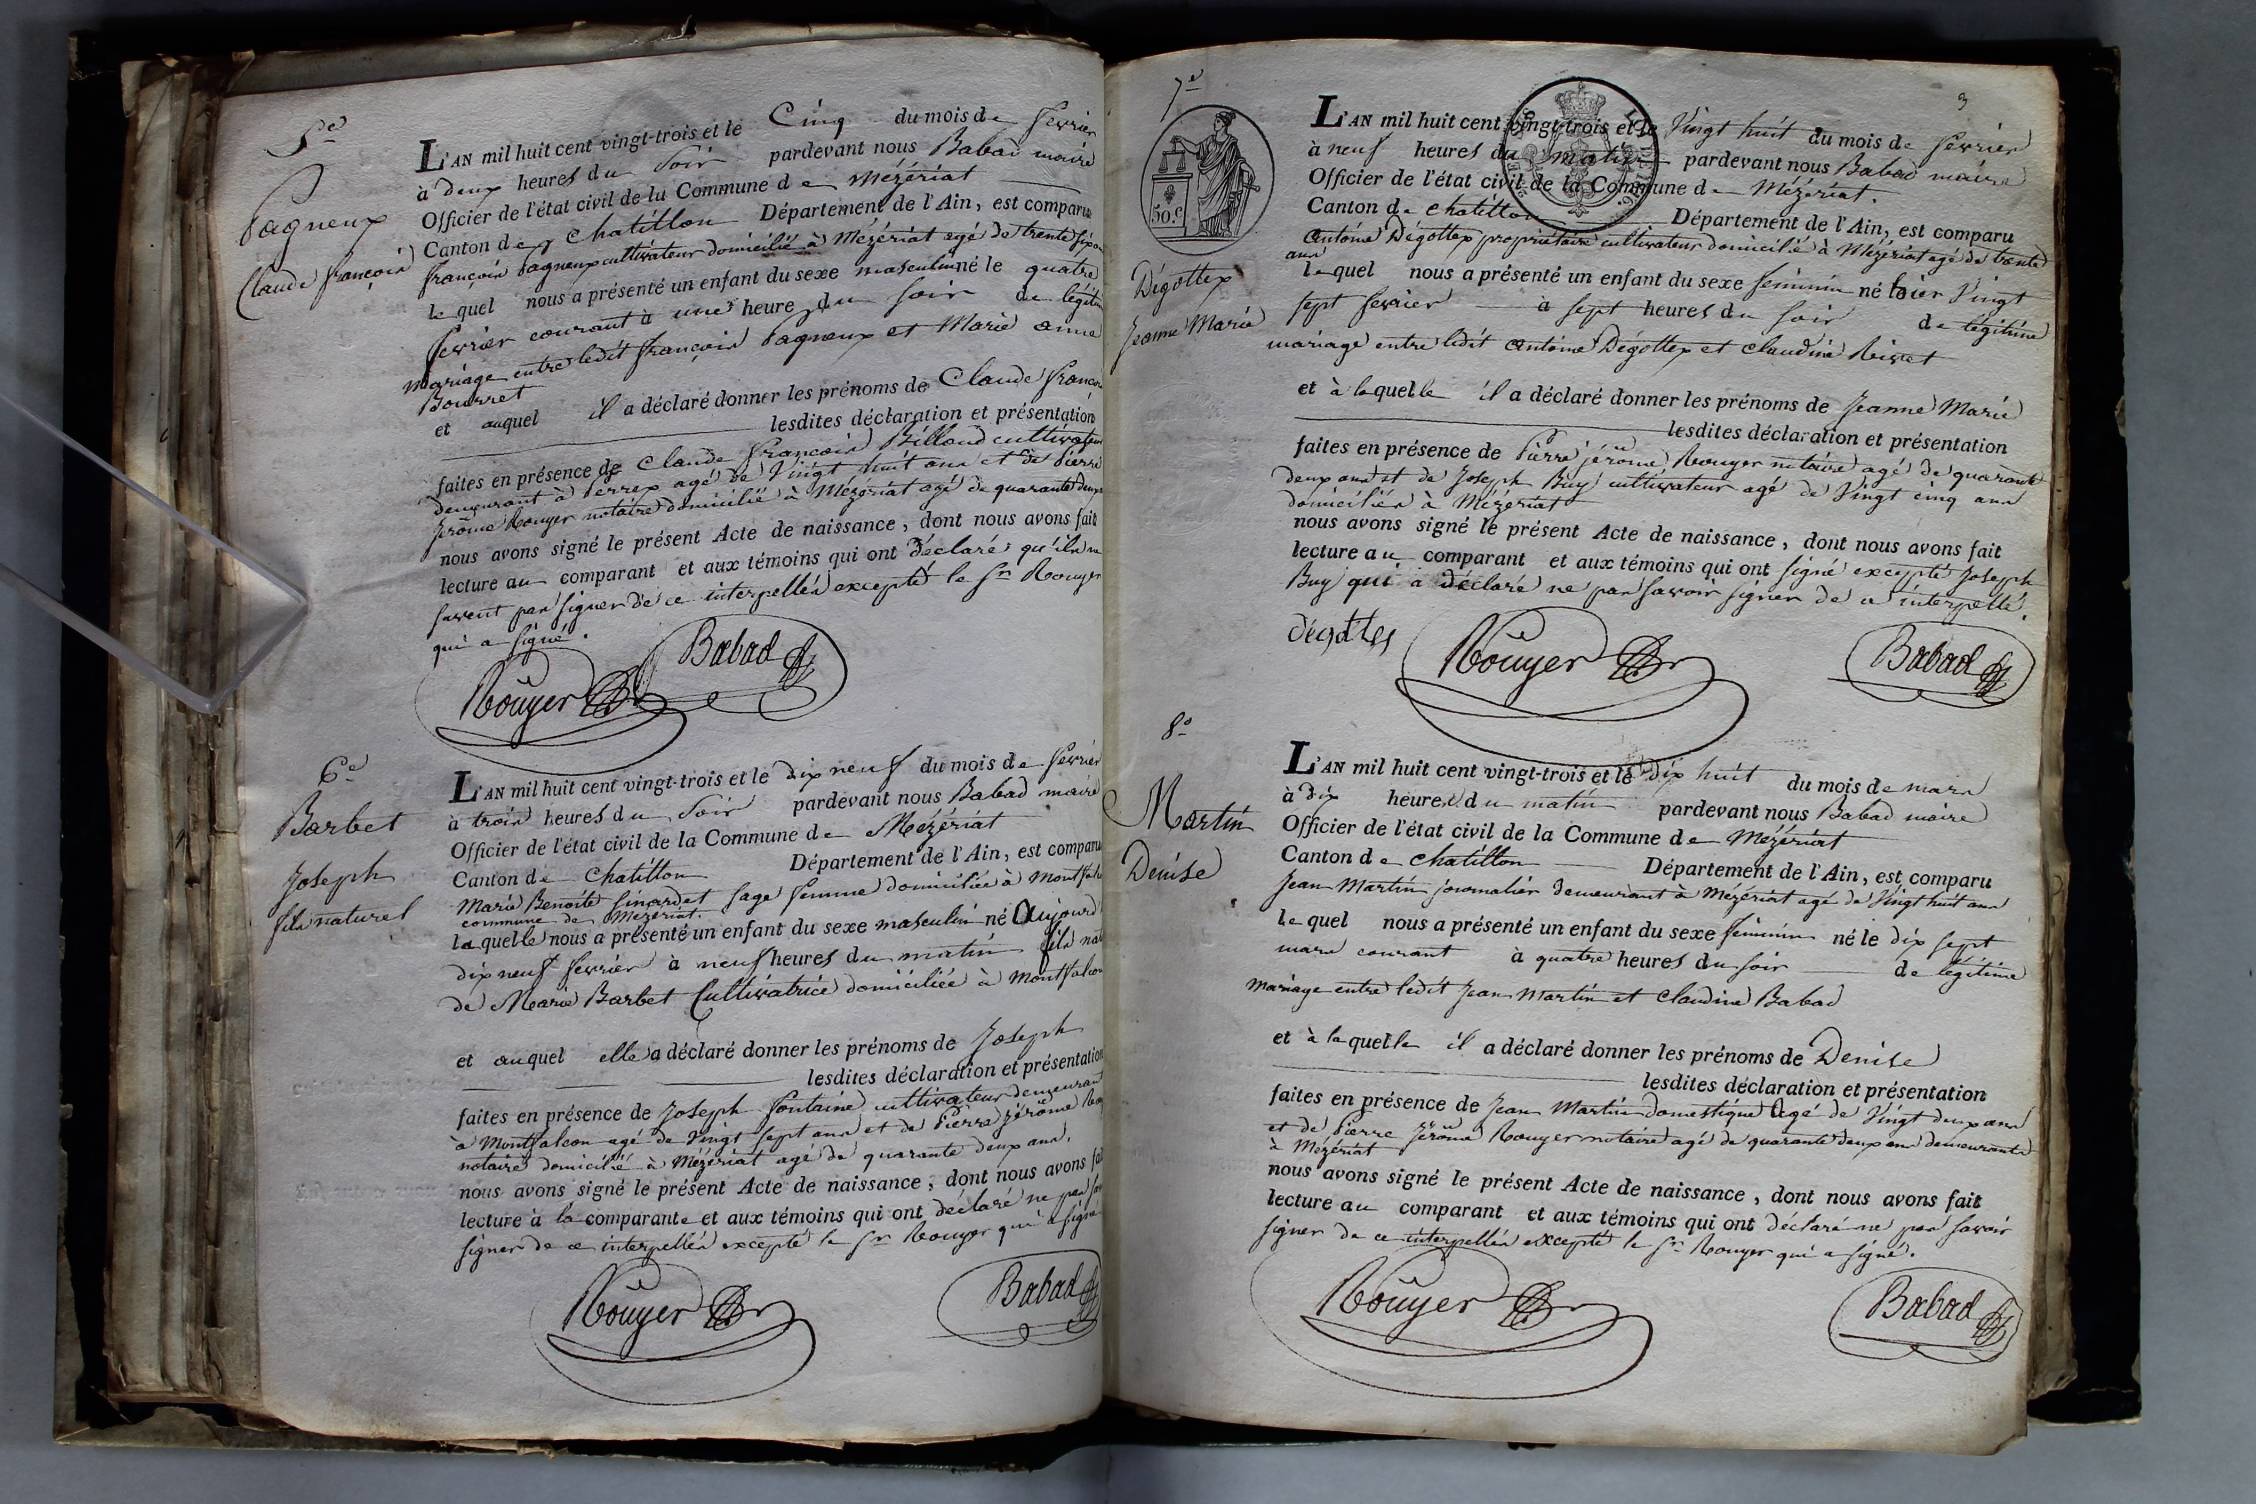 5e
Pagneux
Claude françois
L'AN mil huit cent vingt-trois et le Cinq du mois de fevrier
à deux heures du Soir pardevant nous Babad maire
Officier de l'état civil de la Commune de Mézériat
Canton de Chatillon Département de l'Ain, est comparu
françois Pagneux cultivateur domicilié à Mézériat agé de trente six ans
lequel nous a présenté un enfant du sexe masculin né le quatre
fevrier courant à une heure du soir de légitime
mariage entre ledit françois Pagneux et Marie anne
Bourret
et auquel il a déclaré donner les prénoms de Claude françois
lesdites déclaration et présentation
faites en présence de Claude françois Billoud cultivateur
demeurant à Perrex agé de Vingt huit ans et de Pierre
Jérôme Rouyer notaire domicilié à Mézériat agé de quarante deux
nous avons signé le présent Acte de naissance, dont nous avons fait
lecture au comparant et aux témoins qui ont déclaré qu'ils ne
savent pas signer de ce interpellés excepté le Sr Rouyer
qui a signé.
Rouyer Babad
6e
Barbet
Joseph
fils naturel
L'AN mil huit cent vingt-trois et le dix neuf du mois de fevrier
à trois heures du Soir pardevant nous Babad maire
Officier de l'état civil de la Commune de Mézériat
Canton de Chatillon Département de l'Ain, est comparu
Marie Benoite sage femme domiciliée à
commune de Mézériat.
laquelle nous a présenté un enfant du sexe masculin né Aujourd
dix neuf fevrier à neuf heures du matin fils nat
de Marie Barbet Cultivatrice domiciliée à Montfalcon
et auquel elle a déclaré donner les prénoms de Joseph
lesdites déclaration et présentation
faites en présence de Joseph fontaine cultivateur demeurant
à Montfalcon agé de Vingt sept ans et de Pierre Jérôme
notaire domicilié à Mézériat agé de quarante deux ans.
nous avons signé le présent Acte de naissance, dont nous avons fait
lecture à la comparante et aux témoins qui ont déclaré ne pas
signer de ce interpellés excepté le Sr Rouyer qui a signé
Rouyer Babad
3
7e
50.c
Dégottex
Jeanne Marie
L'AN mil huit cent vingt-trois et le Vingt huit du mois de fevrier
à neuf heures du matin pardevant nous Babad maire
Officier de l'état civil de la Commune de Mézériat.
Canton de Chatillon Département de l'Ain, est comparu
Antoine Dégottex propriétaire cultivateur domicilié à Mézériat agé de trente
ans
lequel nous a présenté un enfant du sexe feminin né hier Vingt
sept fevrier à sept heures du soir de légitime
mariage entre ledit Antoine Dégottex et Claudine
et à laquelle il a déclaré donner les prénoms de Jeanne Marie
lesdites déclaration et présentation
faites en présence de Pierre jérôme Rouyer notaire agé de quarante
deux ans et de Joseph Buy cultivateur agé de Vingt cinq ans
domiciliés à Mézériat
nous avons signé le présent Acte de naissance, dont nous avons fait
lecture au comparant et aux témoins qui ont signé excepté Joseph
Buy qui a déclaré ne pas savoir signer de ce interpellé.
Rouyer Babad
8e
Martin
Denise
L'AN mil huit cent vingt-trois et le dix huit du mois de mars
à dix heures du matin pardevant nous Babad maire
Officier de l'état civil de la Commune de Mézériat
Canton de Chatillon Département de l'Ain, est comparu
Jean Martin journalier demeurant à Mézériat agé de Vingt huit ans
lequel nous a présenté un enfant du sexe feminin né le dix sept
mars courant à quatre heures du soir de légitime
mariage entre ledit Jean Martin et Claudine Babad
et à laquelle il a déclaré donner les prénoms de Denise
lesdites déclaration et présentation
faites en présence de Jean Martin domestique agé de Vingt deux ans
et de Pierre Jérôme Rouyer notaire agé de quarante deux ans demeurants
à Mézériat
nous avons signé le présent Acte de naissance, dont nous avons fait
lecture au comparant et aux témoins qui ont déclaré ne pas savoir
signer de ce interpellés excepté le Sr Rouyer qui a signé.
Rouyer Babad